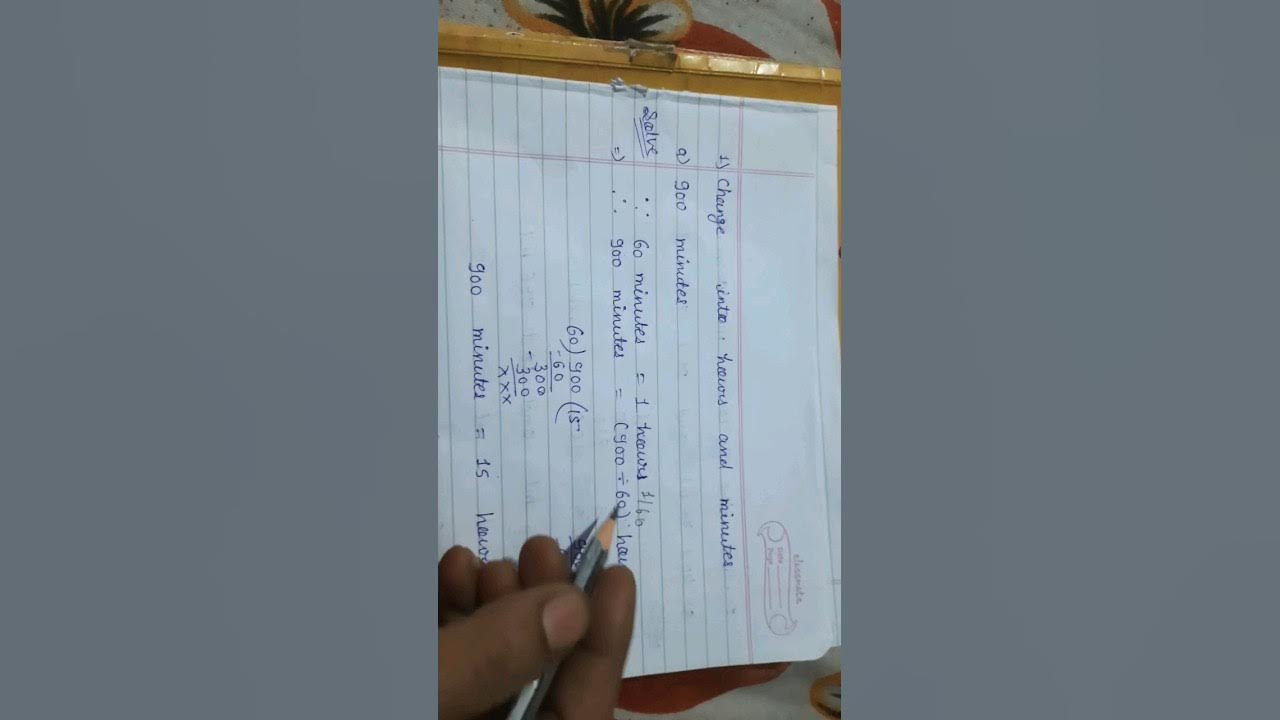 classmate
Date
Page
1) Change into hours and minutes
a) 900 minutes
Solve
∵ 60 minutes = 1 hours 1/60
=) ∴ 900 minutes = (900 ÷ 60)
60) 900 (15
-60
300
-300
xxx
900 minutes = 15